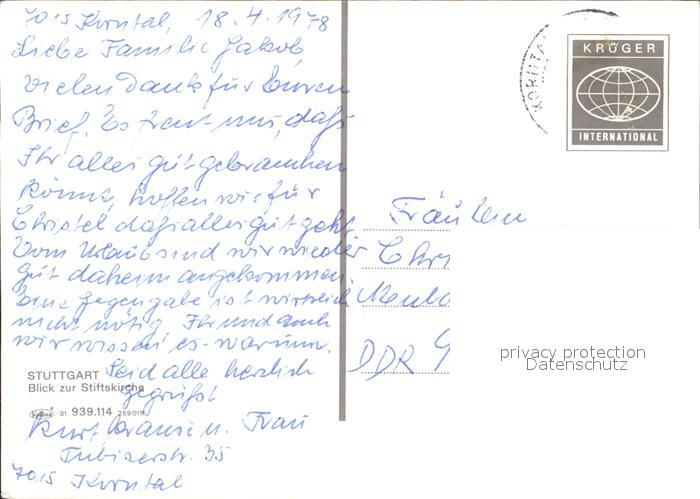 7015 Korntal, 18.4.1978
Liebe Familie Jakob,
Vielen Dank für Euren
Brief. Es freut uns, daß
Ihr alles gut gebrauchen
könnt, hoffen wir für
Christel daß alles gut geht.
Vom Urlaub sind wir wieder
gut daheim angekommen.
Eine Gegengabe ist wirklich
nicht nötig, Ihr und auch
wir wissen es warum.
Seid alle herzlich
gegrüßt
Kurt Krause u. Frau
Tubizerstr. 35
7015 Korntal
STUTTGART
Blick zur Stiftskirche
31. 939.114 269018
KORNTA
KRÜGER
INTERNATIONAL
Fräulein
Chri
DDR 9
privacy protection
Datenschutz